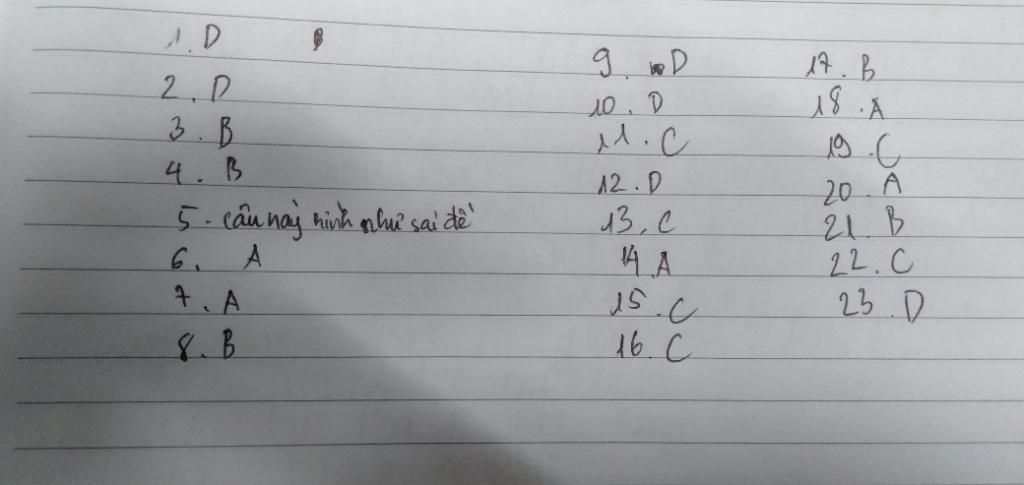 1. D
2. D
3. B
4. B
5. câu này hình như sai đề
6. A
7. A
8. B
9. D
10. D
11. C
12. D
13. C
14 A
15. C
16. C
17. B
18. A
19. C
20. A
21. B
22. C
23. D